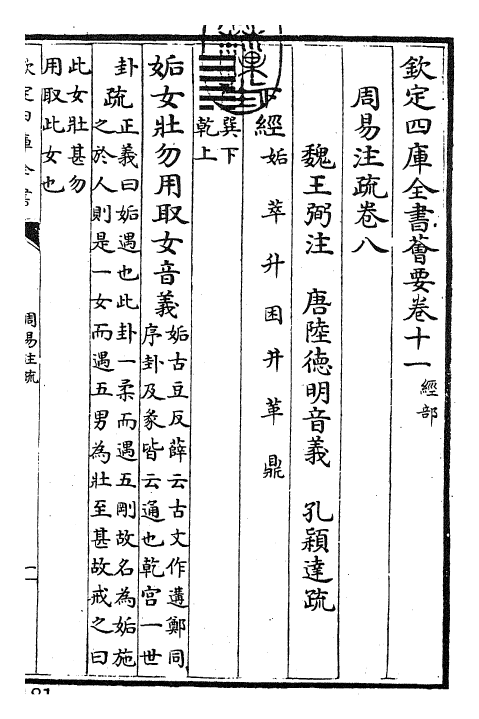 欽定四庫全書薈要卷十一 經部
周易注疏卷八
魏王弼注 唐陸德明音義 孔穎達疏
下經 姤 萃 升 困 井 革 鼎
巽下
乾上
姤女壯勿用取女音義
姤古豆反薛云古文作遘鄭同
序卦及彖皆云遇也乾宮一世
卦疏
正義曰姤遇也此卦一柔而遇五剛故名為姤施
之於人則是一女而遇五男為壯至甚故戒之曰
此女壯甚勿
用取此女也
欽定四庫全書
周易注疏